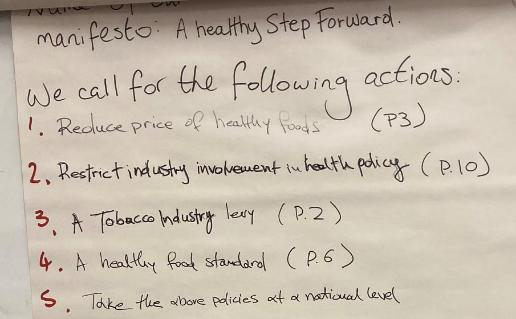 manifesto: A healthy Step Forward.
We call for the following actions:
1. Reduce price of healthy foods (P3)
2. Restrict industry involvement in health policy (P.10)
3. A Tobacco Industry levy (P.2)
4. A healthy food standard (P.6)
5. Take the above policies at a national level